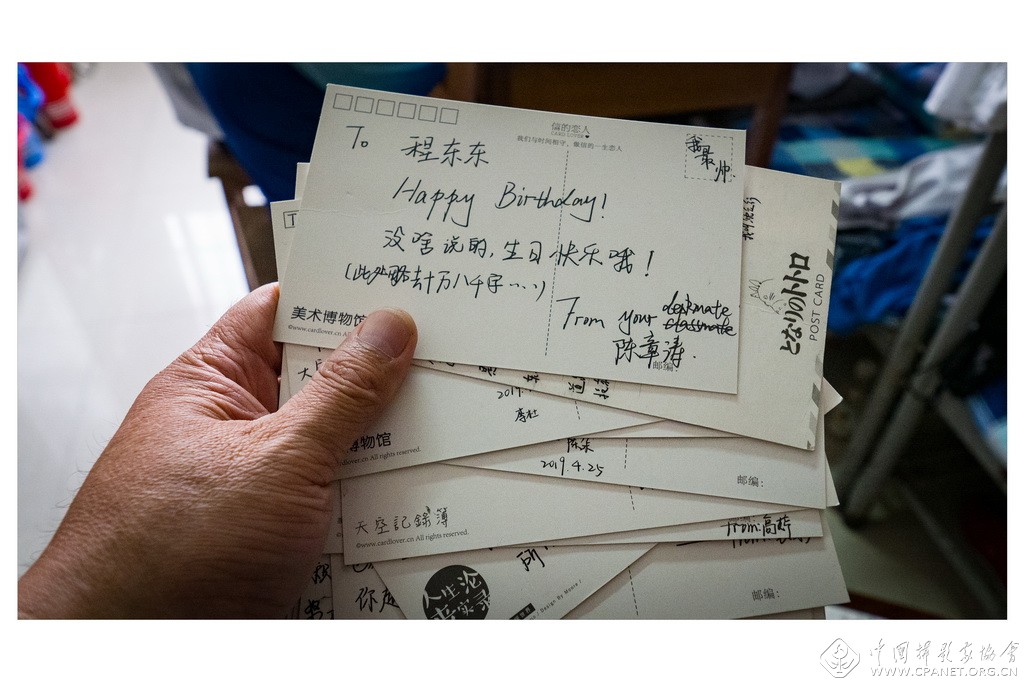 信的恋人
CARD LOVER
我们与时间相守，做信的一生恋人
我最帅
To 程东东
Happy Birthday!
没啥说的，生日快乐哦！
(此处略去十万八千字……)
From your deskmate
classmate
陈章涛.
邮编：
美术博物馆
©www.cardlover.cn All rights reserved.
となりのトトロ
POST CARD
T
大
2019.
李杜
博物馆
dlover.cn All rights reserved.
2019.4.25
邮编：
天空記錄簿
©www.cardlover.cn All rights reserved.
from:高
所
你
人生论
实录
/ Design By Moore /
邮编：
中国摄影家协会
WWW.CPANET.ORG.CN